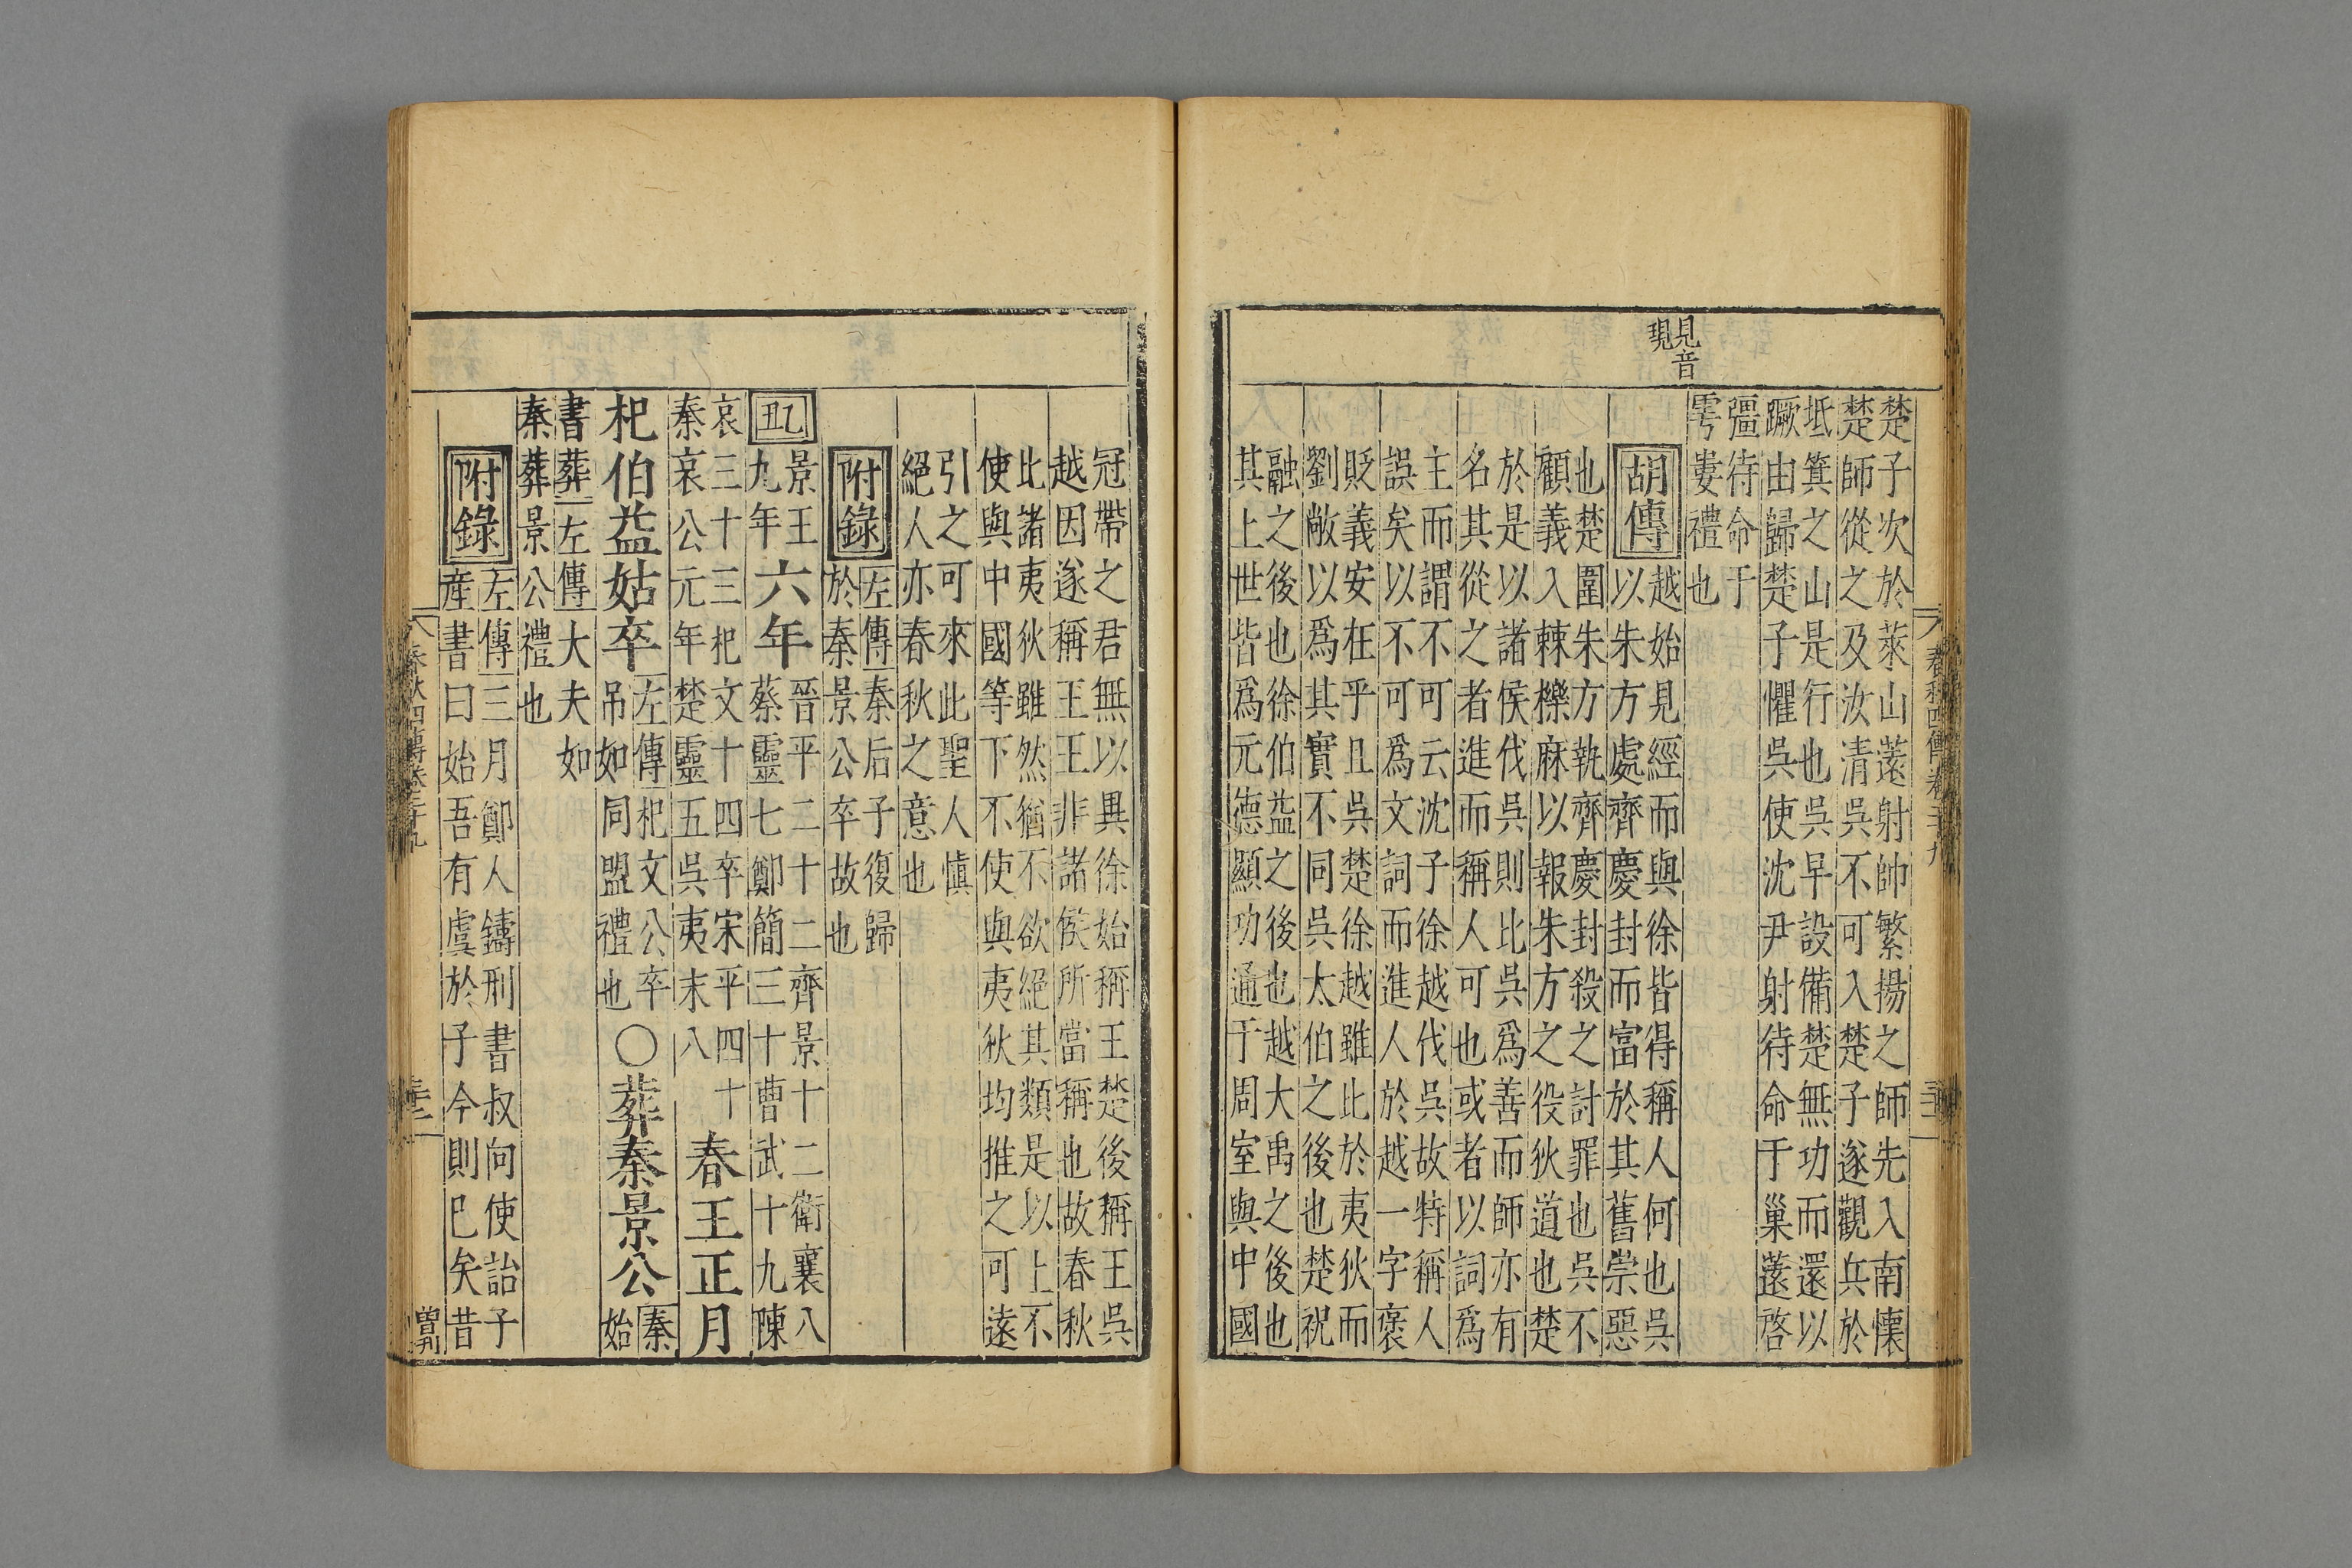 見音
現
楚子次於萊山薳射帥繁揚之師先入南懷
楚師從之及汝清吳不可入楚子遂觀兵於
坻箕之山是行也吳早設備楚無功而還以
蹶由歸楚子懼吳使沈尹射待命于巢薳啓
彊待命于
雩婁禮也
胡傳
越始見經而與徐皆得稱人何也吳
以朱方處齊慶封而富於其舊崇惡
也楚圍朱方執齊慶封殺之討罪也吳不
顧義入棘櫟麻以報朱方之役狄道也楚
於是以諸侯伐吳則比吳爲善而師亦有
名其從之者進而稱人可也或者以詞爲
主而謂不可云沈子徐越伐吳故特稱人
誤矣以不可爲文詞而進人於越一字褒
貶義安在乎且吳楚徐越雖比於夷狄而
劉敞以爲其實不同吳太伯之後也楚祝
融之後也徐伯益之後也越大禹之後也
其上世皆爲元德顯功通于周室與中國
冠帶之君無以異徐始稱王楚後稱王吳
越因遂稱王王非諸侯所當稱也故春秋
比諸夷狄雖然猶不欲絕其類是以上不
使與中國等下不使與夷狄均推之可遠
引之可來此聖人慎
絕人亦春秋之意也
附錄
左傳秦后子復歸
於秦景公卒故也
乙丑
景王
九年
六年
晉平二十二齊景十二衛襄八
蔡靈七鄭簡三十曹武十九陳
哀三十三杞文十四卒宋平四十
秦哀公元年楚靈五吳夷末八
春王正月
杞伯益姑卒
左傳杞文公卒
吊如同盟禮也
○葬秦景公
秦始
書葬左傳大夫如
秦葬景公禮也
附錄
左傳三月鄭人鑄刑書叔向使詒子
産書曰始吾有虞於子今則巳矣昔
春秋四傳卷二十九
曽刋